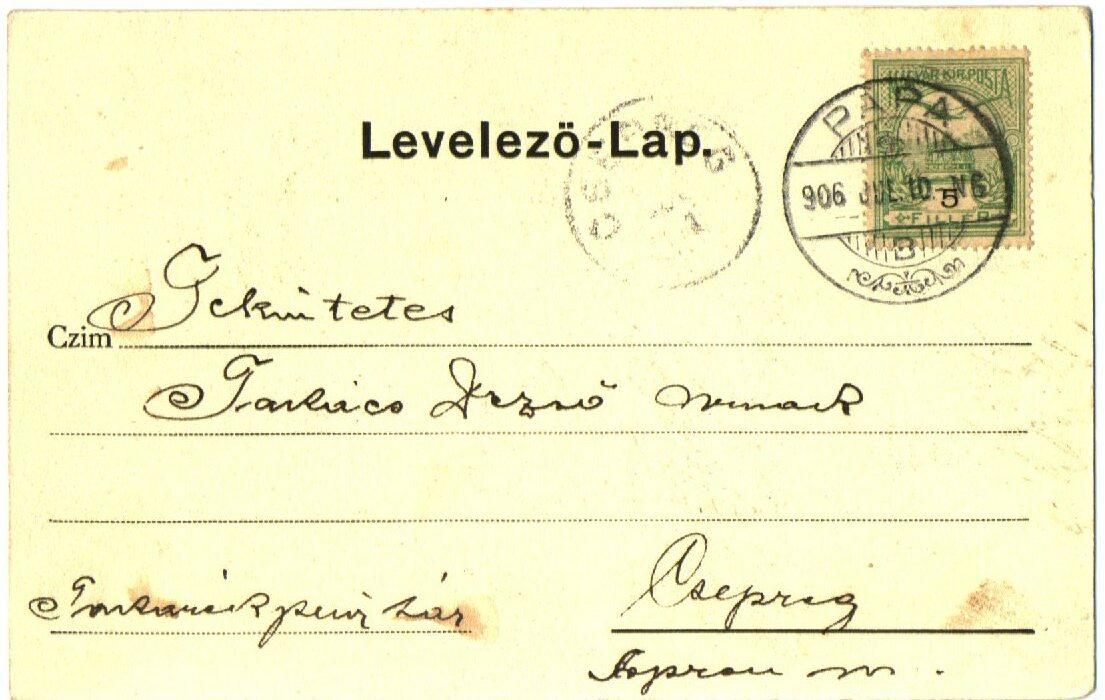 MAGYAR KIR. POSTA
Levelező-Lap.
PÁPA
906 JUL. 10. N6
5
FILLER
B
CSEPREG
Tekintetes
Czim
Takács Dezső urnak
Takarékpénztár
Csepreg
Sopron m.